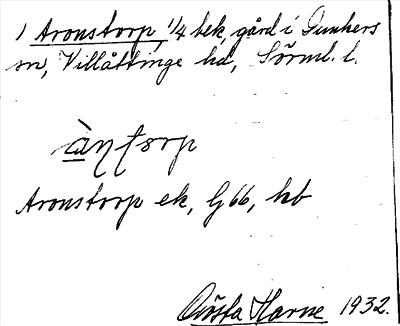 1 Aronstorp, 1/4 bek, gård i Dunkers
sn, Villåttinge hd, Sörml. l.
àηtorp
Aronstorp ek, G66, hb
Gösta Harne 1932.